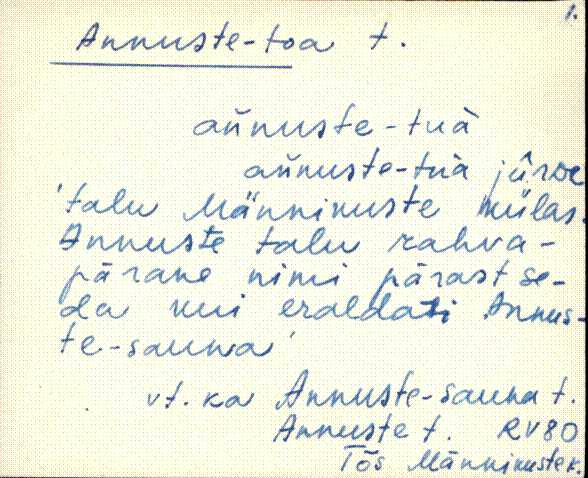 1.
Annuste-toa t.
ańnuste-tuà
ańnuste-tùa jûrde
'talu Männikuste külas.
Annuste talu rahva-
pärane nimi pärast se-
da kui eraldati Annus-
te-sauna'
vt. ka Annuste-sauna t.
Annuste t. RV80
Tõs Männikuste k.